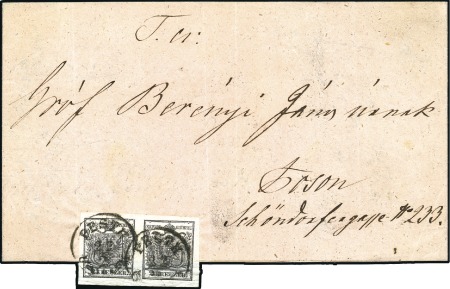 T. cz:
Gróf Berényi János úrnak
Poson
Schöndorfergasse No 233.
PESTH
PESTH